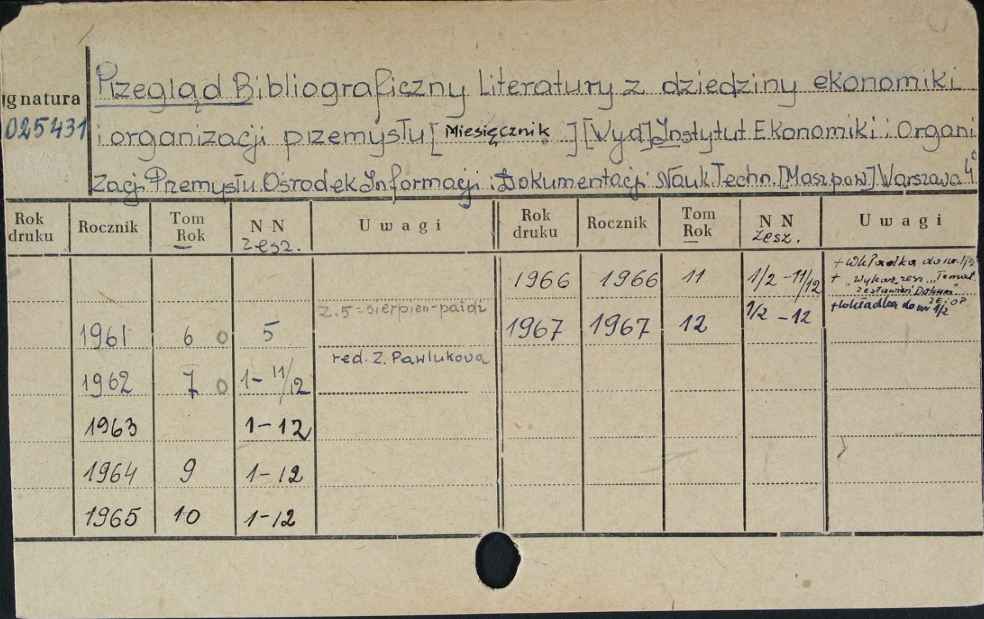 Przegląd Bibliograficzny Literatury z dziedziny ekonomiki
gnatura
025431
i organizacji przemysłu [Miesięcznik.] [Wyd] Instytut Ekonomiki i Organi
zacji Przemysłu. Ośrodek Informacji i Dokumentacji Nauk. Techn. [Maszpow] Warszawa 4°
Rok druku Rocznik Tom Rok NN zesz. Uwagi Rok druku Rocznik Tom Rok NN zesz. Uwagi
1966 1966 11 1/2 - 11/12 + Wkładka do nr. 1/3
+ "Wykaz zesz. Temat.
zestawień Dokum."
z. 5 = sierpień-paźdz
1967 1967 12 1/2 - 12 + wkładka do nr 1/2
1961 6 0 5
red. Z. Pawlukowa
1962 7 0 1 - 11/12
1963 1 - 12
1964 9 1 - 12
1965 10 1 - 12